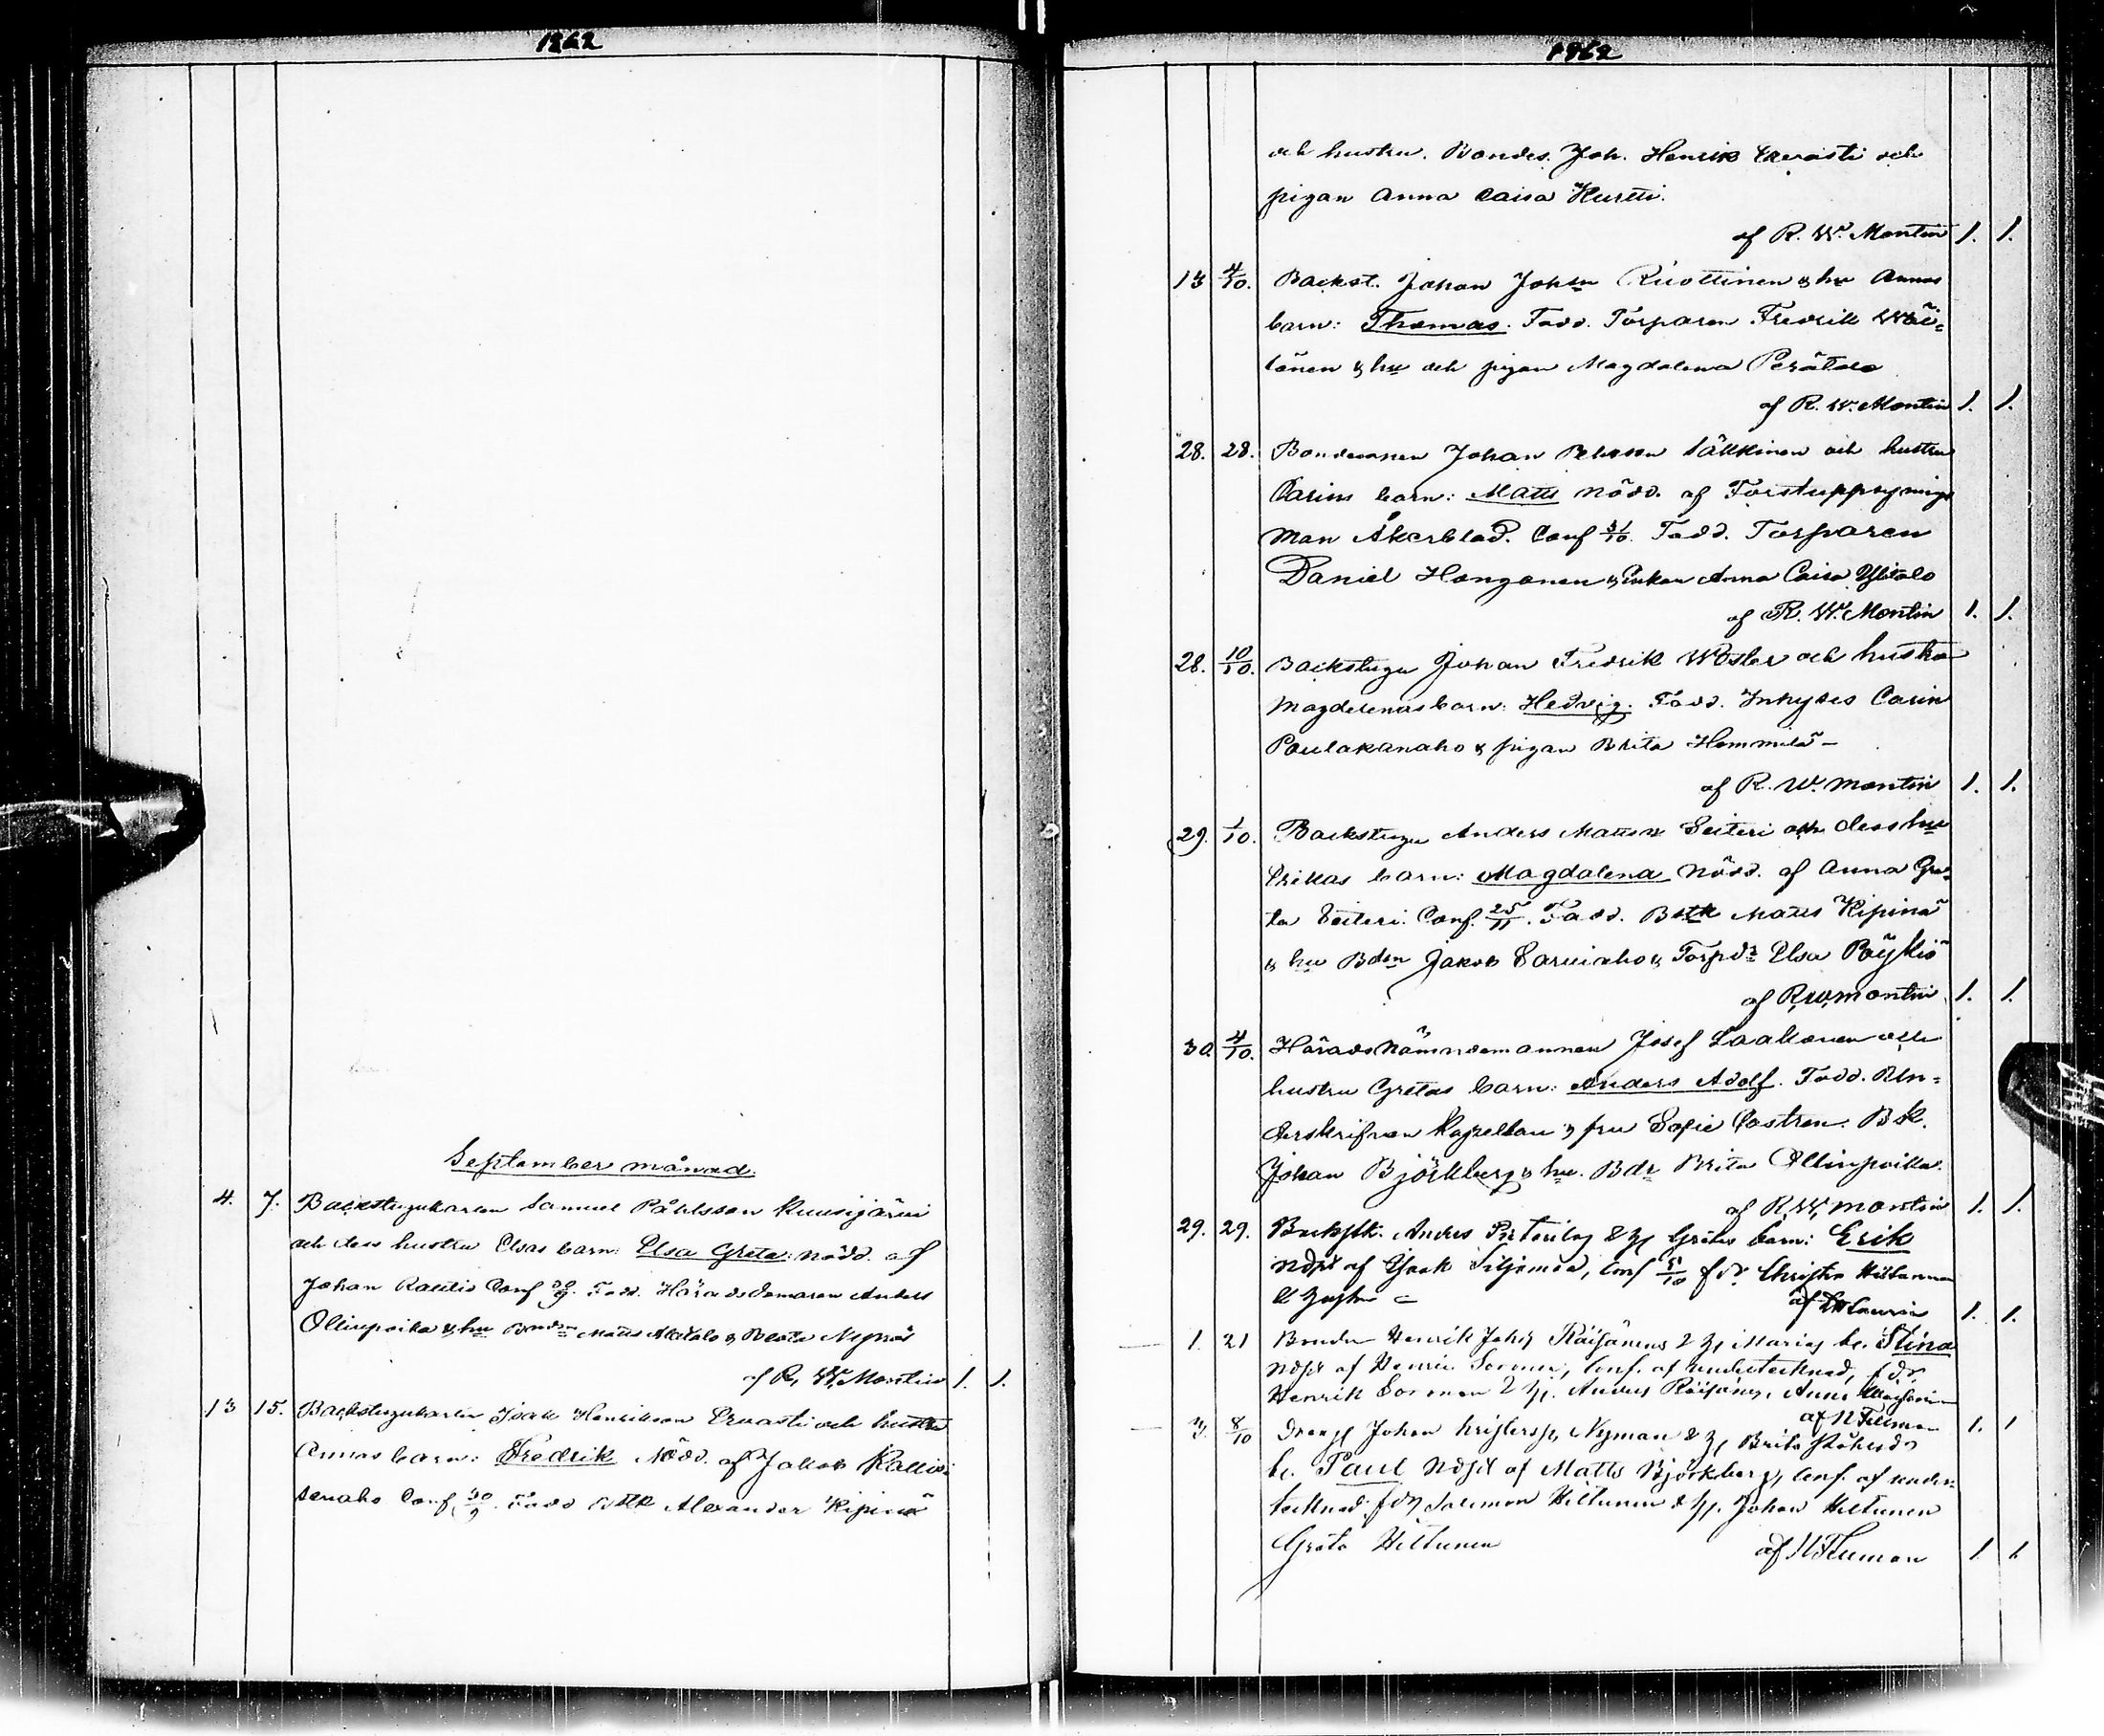 1862
September månad.
4. 7. Backstugukarlen Samuel Påhlsson Kuusijärvi
och dess hustru Elsas barn: Elsa Greta: nödd. af
Johan Rautio Conf 30/9. Fadd. Häradsdomaren Anders
Ollinpoika & hu Bonden Matts Alatalo & Beata Nygård
af R. W. Montin 1. 1.
13 15. Backstugukarlen Isak Henriksson Ervasti och hustru
Annas barn: Fredrik Nödd. af Jakob Kallio-
Conf 30/9. Fadd Bstk Alexander Kipinä
1862
och hustru. Bondes. Joh. Henrik Ervasti och
pigan Anna Caisa Hurtti.
af R. W. Montin 1. 1.
13 4/10. Backst. Johan Johsn Ruottinen & hu Annas
barn: Thomas. Fadd. Torparen Fredrik Wäi-
sänen & hu och pigan Magdalena Perätalo
af R. W. Montin 1. 1.
28. 28. Bondesonen Johan Petersson Sälkkinen och hustru
Carins barn: Matts nödd. af Forstuppsynings
man Åkerblad. Conf 31/10. Fadd. Torparen
Daniel Hongonen & Enkan Anna Caisa Ylitalo
af R. W. Montin 1. 1.
28. 10/10. Backstugu Johan Fredrik Wäster och hustru
Magdelenas barn: Hedvig. Fadd. Inhyses Carin
Poulakanaho & pigan Brita Hemmilä –
af R. W. Montin 1. 1.
29. 1/10. Backstugu Anders Mattsn Seiteri och dess hu
Erikas barn: Magdalena nödd. af Anna Gre-
ta Seiteri. Conf. 25/11. Fadd. Bstk Matts Kipinä
& hu Bdsn Jakob Sarviaho & Torpdr Elsa Pöykiö
af R. W. Montin 1. 1.
30. 4/10. Häradsnämndemannen Josef Laakonen och
hustru Gretas barn: Anders Adolf. Fadd. Un-
derskrifven Kapellan & fru Sofie Castren. Bstk.
Johan Björkberg & hu. Bdr Brita Ollinpoika.
af R. W. Montin 1. 1.
29. 29. Backstk. Anders & H. Gretas barn: Erik
Ndpt af Isak Siljamaa, Conf 5/10 fdr. Christer Hiltunen
& hustru
af Laurin 1. 1.
1. 21 Bonden Henrik Johs Räisänens & H. Marias b. Stina
Ndpt af Henric Sormunen, Conf. af undertecknad, fdr.
Henrik & H. Anders Räisänen, Anna
af N Fellman 1. 1
3. 8/10 Dreng Johan Kristerss. Nyman & H. Brita Påhlsdr
b. Paul Ndpt af Matts Björkberg, Conf. af under-
tecknad: fdr Salomon Hiltunen & H. Johan Hiltunen
Greta Hiltunen af N Fellman 1. 1.